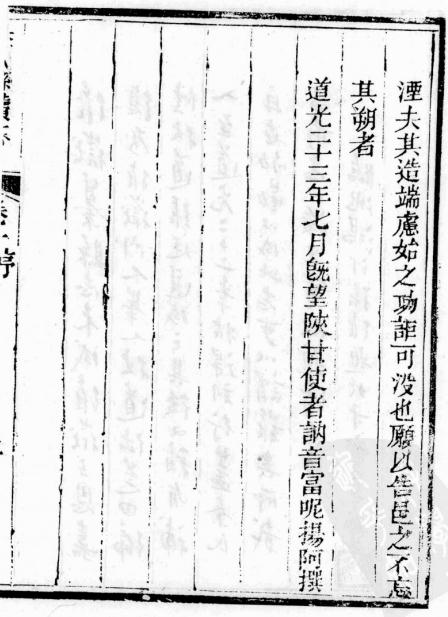 湮夫其造端慮始之功詎可没也願以告邑之不忘
其朔者
道光二十三年七月既望陝甘使者訥音富呢揚阿撰